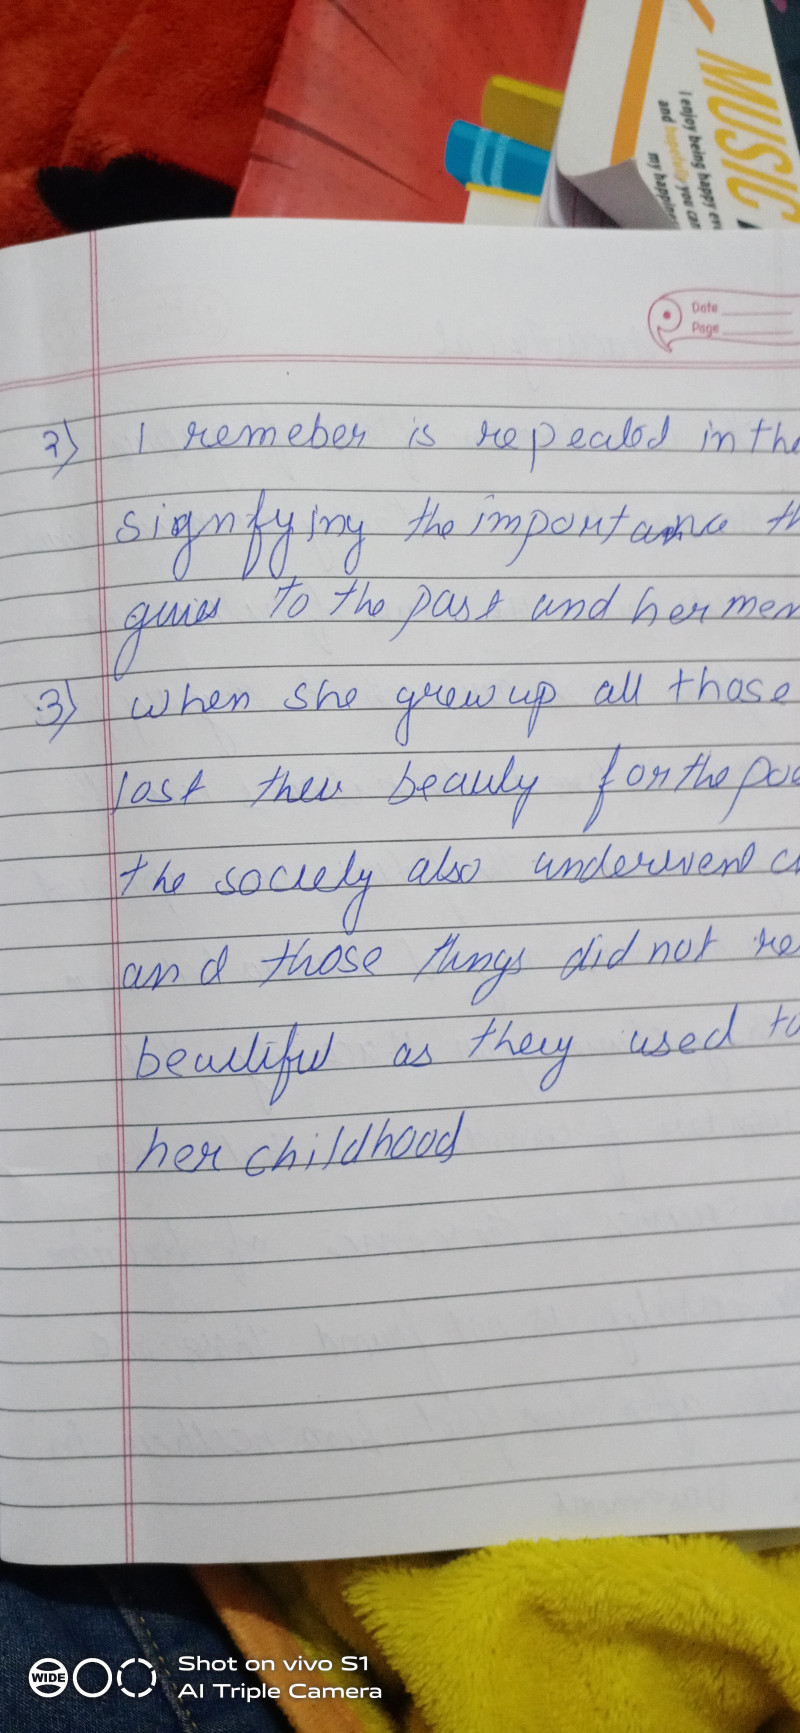 MUSIC
I enjoy being happy
and hopefully you can
my happin
Date
Page
2) I remeber is repeated in the
signifying the importance th
gives to the past and her mem
3) when she grew up all those
lost their beauty for the poe
the society also underwent
and those things did not re
beautiful as they used to
her childhood
WIDE
Shot on vivo S1
AI Triple Camera